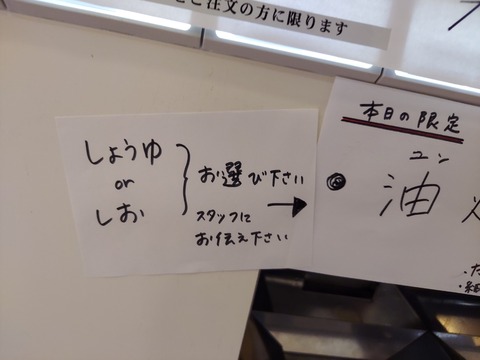 ご注文の方に限ります
しょうゆ
or
しお
お選び下さい
スタッフに
お伝え下さい
本日の限定
ユン
油